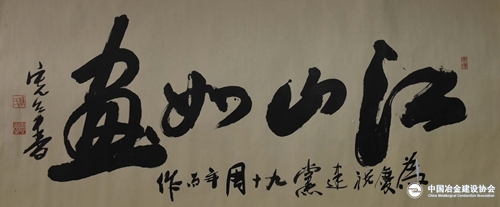 江山如画
为庆祝建党九十周年而作
中国冶金建设协会
China Metallurgical Construction Association